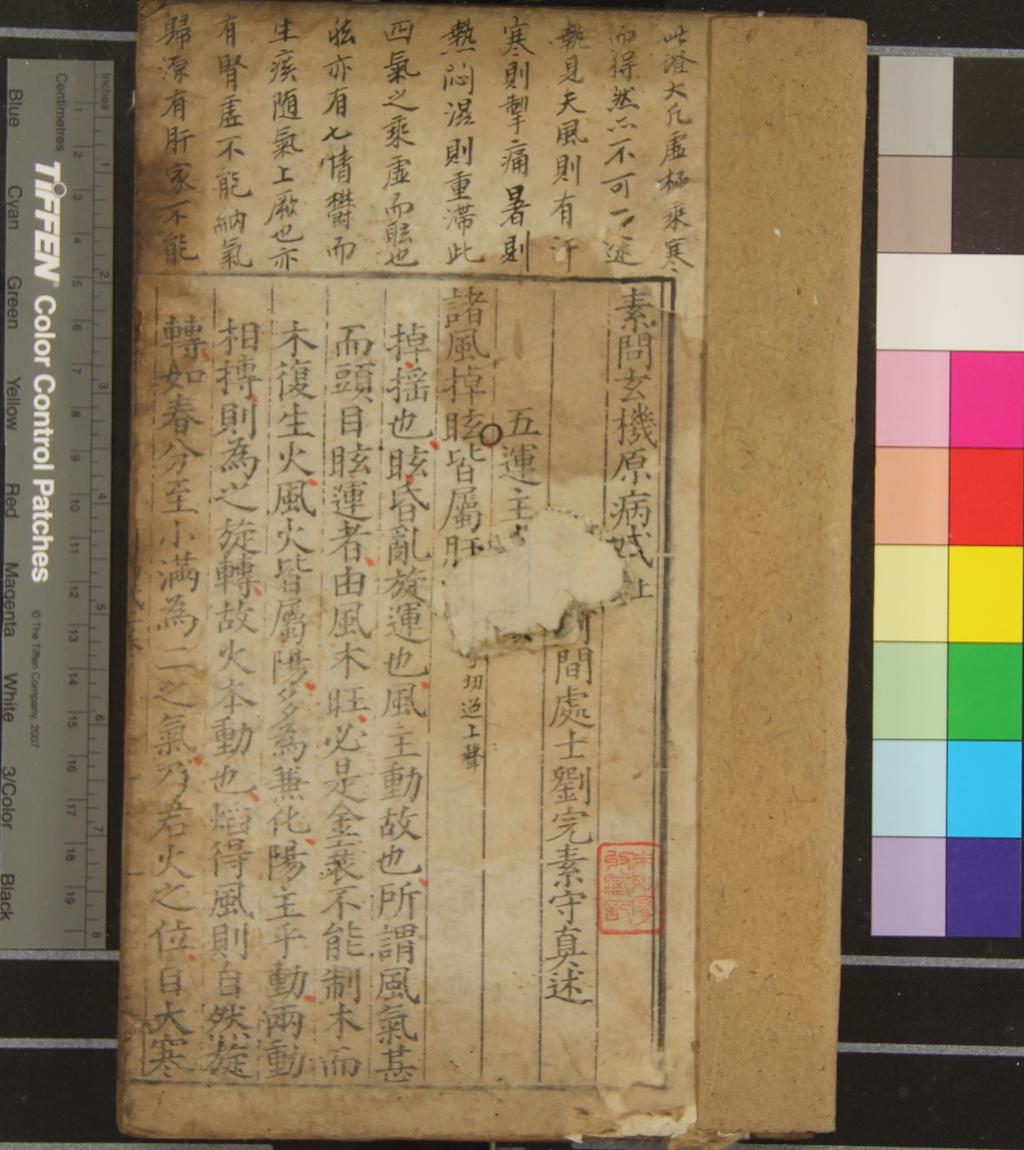 此澄大凡虛極乘寒
而得然亦不可一述
執見夫風則有汗
寒則掣痛暑則
熱悶濕則重滯此
四氣之乘虛而眩也
眩亦有七情鬱而
生痰随氣上厥也亦
有腎虛不能納氣
歸源有肝家不能
素問玄機原病式上
間處士劉完素守真述
五運主
諸風掉眩皆屬肝
切過上聲
掉摇也眩昏亂旋運也風主動故也所謂風氣甚
而頭目眩運者由風木旺必是金衰不能制木而
木復生火風火皆屬陽多為兼化陽主乎動兩動
相摶則為之旋轉故火本動也熖得風則自然旋
轉如春分至小滿為二之氣乃君火之位自大寒
Inches
Centimetres
TIFFEN Color Control Patches
© The Tiffen Company, 2007
Blue Cyan Green Yellow Red Magenta White 3/Color Black
1 2 3 4 5 6 7 8
1 2 3 4 5 6 7 8 9 10 11 12 13 14 15 16 17 18 19